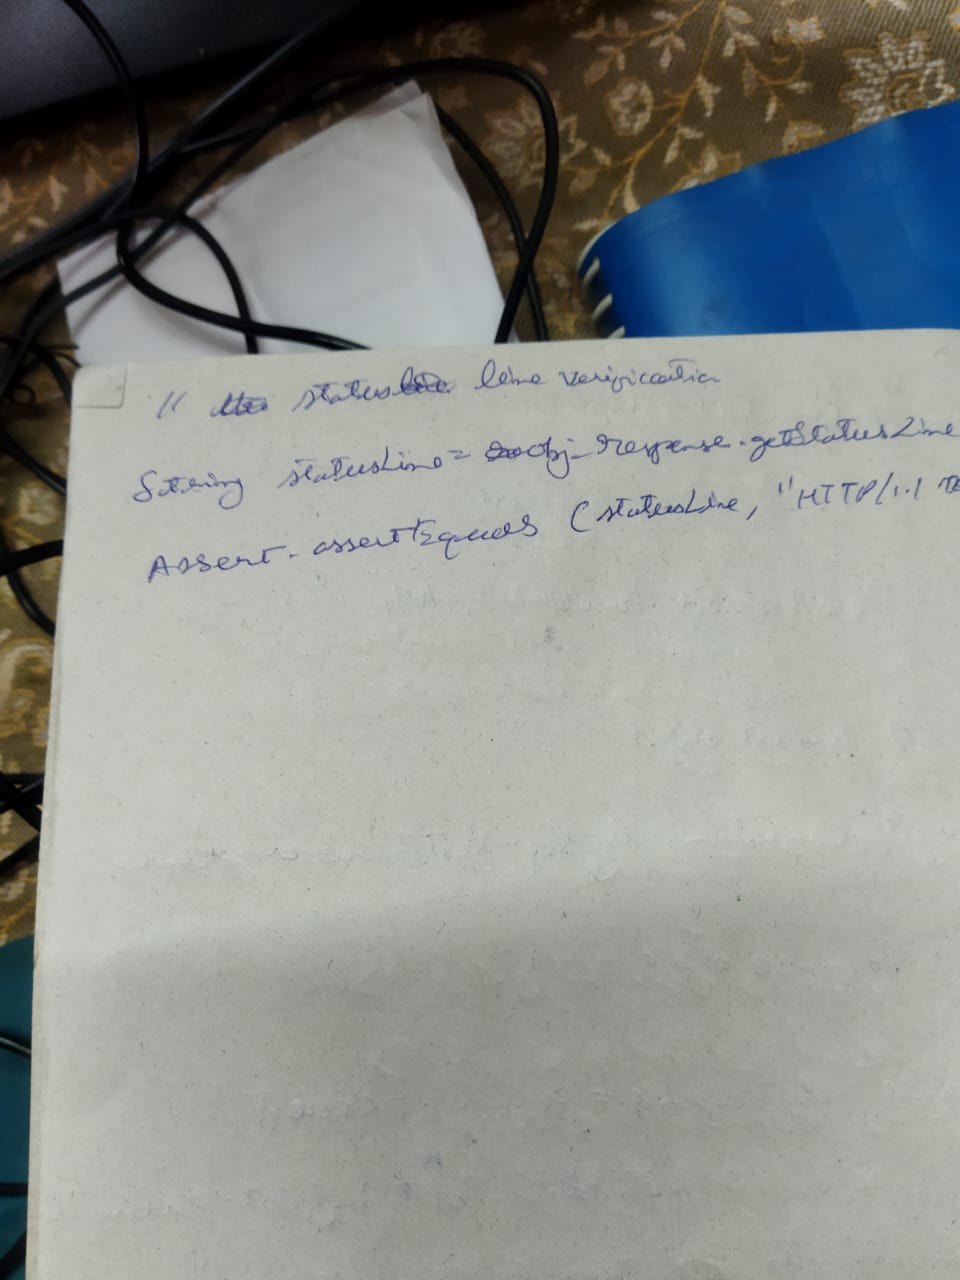 // status line verification
String statusLine = obj_response.getStatusLine
Assert.assertEquals (statusLine, "HTTP/1.1